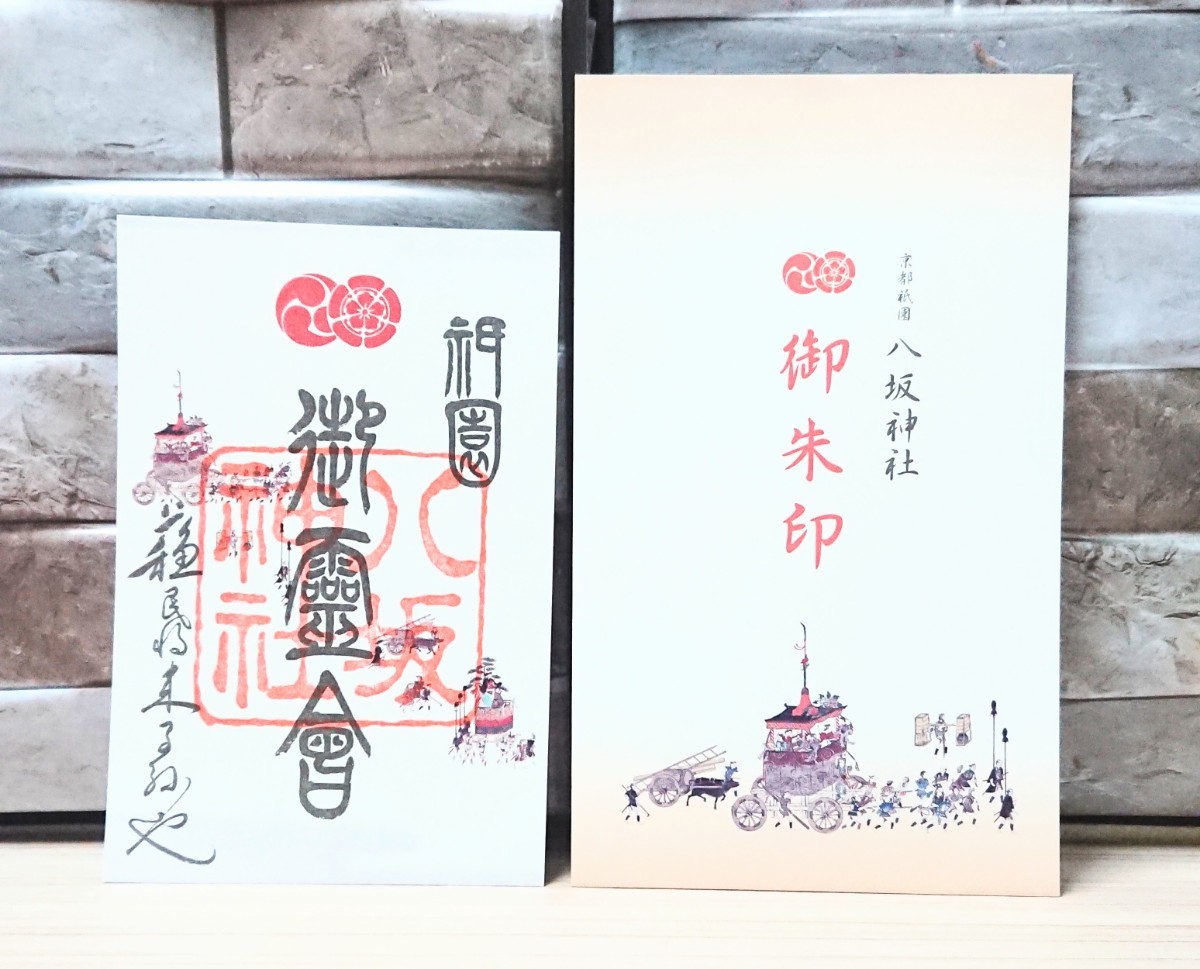 祇園
御靈會
八坂神社
蘇民将来子孫也
京都祇園
八坂神社
御朱印